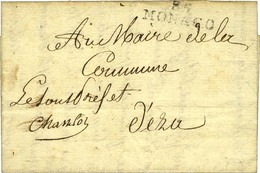 85
MONACO
Au Maire de la
Commune
Le Sous Préfet
d'éza